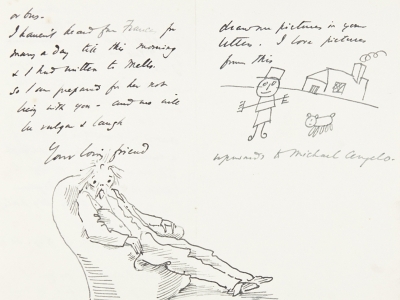 or bus.
I haven't heard from France for
many a day till this morning
& I had written to Mells.
So I am prepared for her not
being with you - and we will
be vulgar & laugh
Your loving friend
draw me pictures in your
letters. I love pictures
from this
upwards to Michael Angelo.